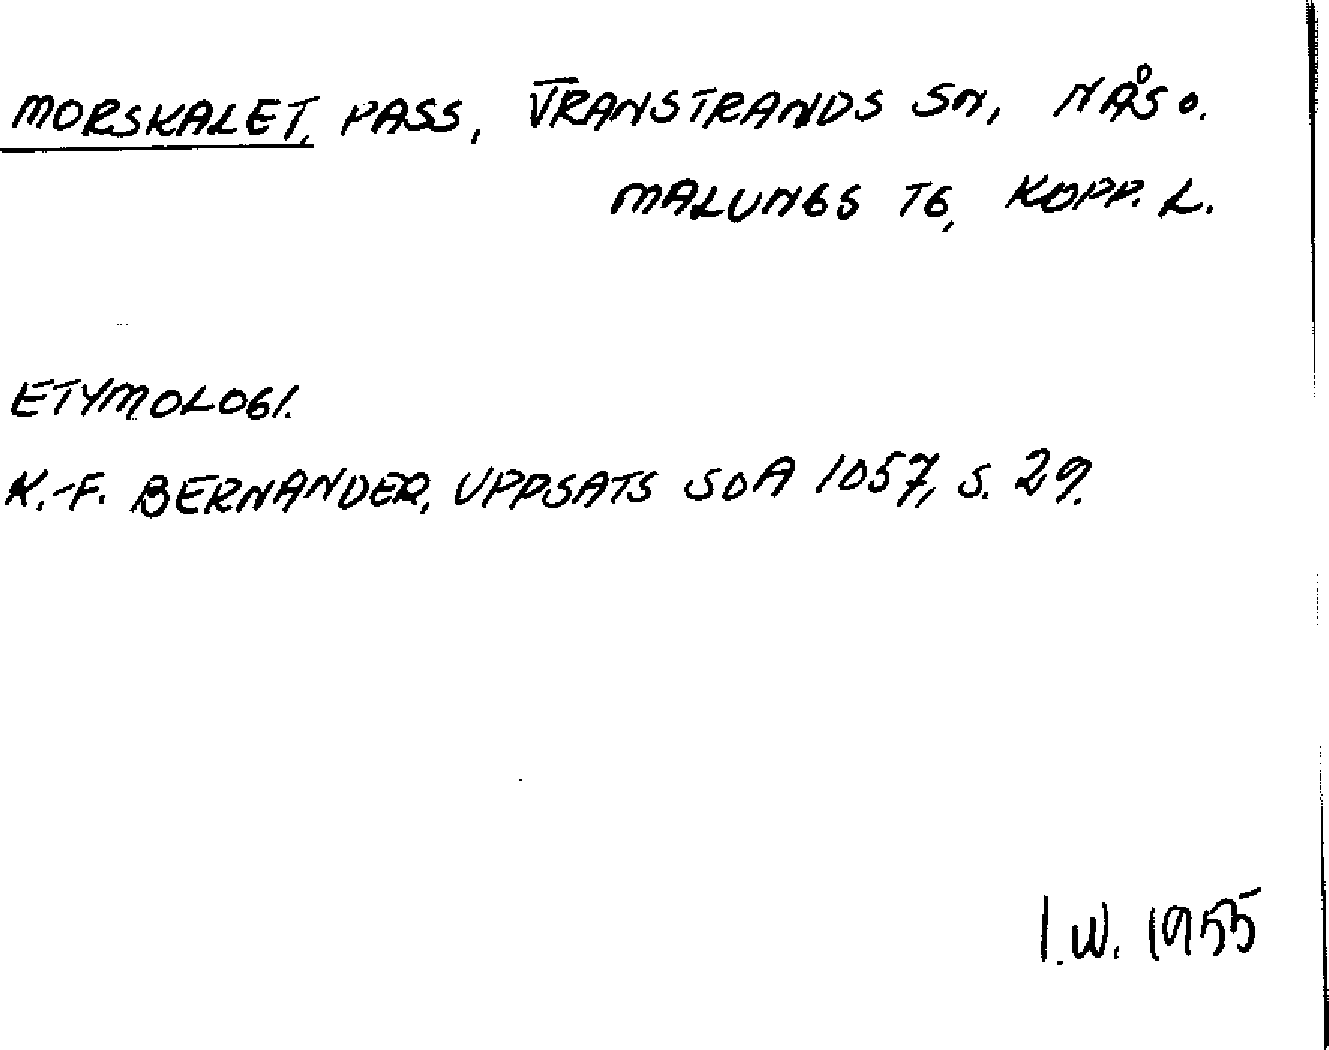 MORSKALET, PASS, TRANSTRANDS SN, NÅS O.
MALUNGS TG, KOPP. L.
ETYMOLOGI.
K.-F. BERNANDER, UPPSATS SOA 1057, S. 29.
I.W. 1955